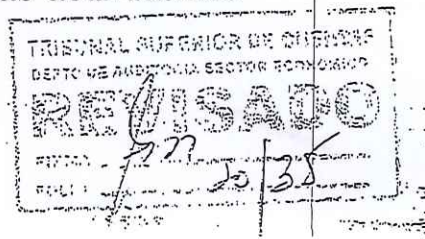 TRIBUNAL SUPERIOR DE CUENTAS
DEPTO DE AUDITORIA SECTOR ECONOMICO
REVISADO
FIRMA
FOLIO 20/35